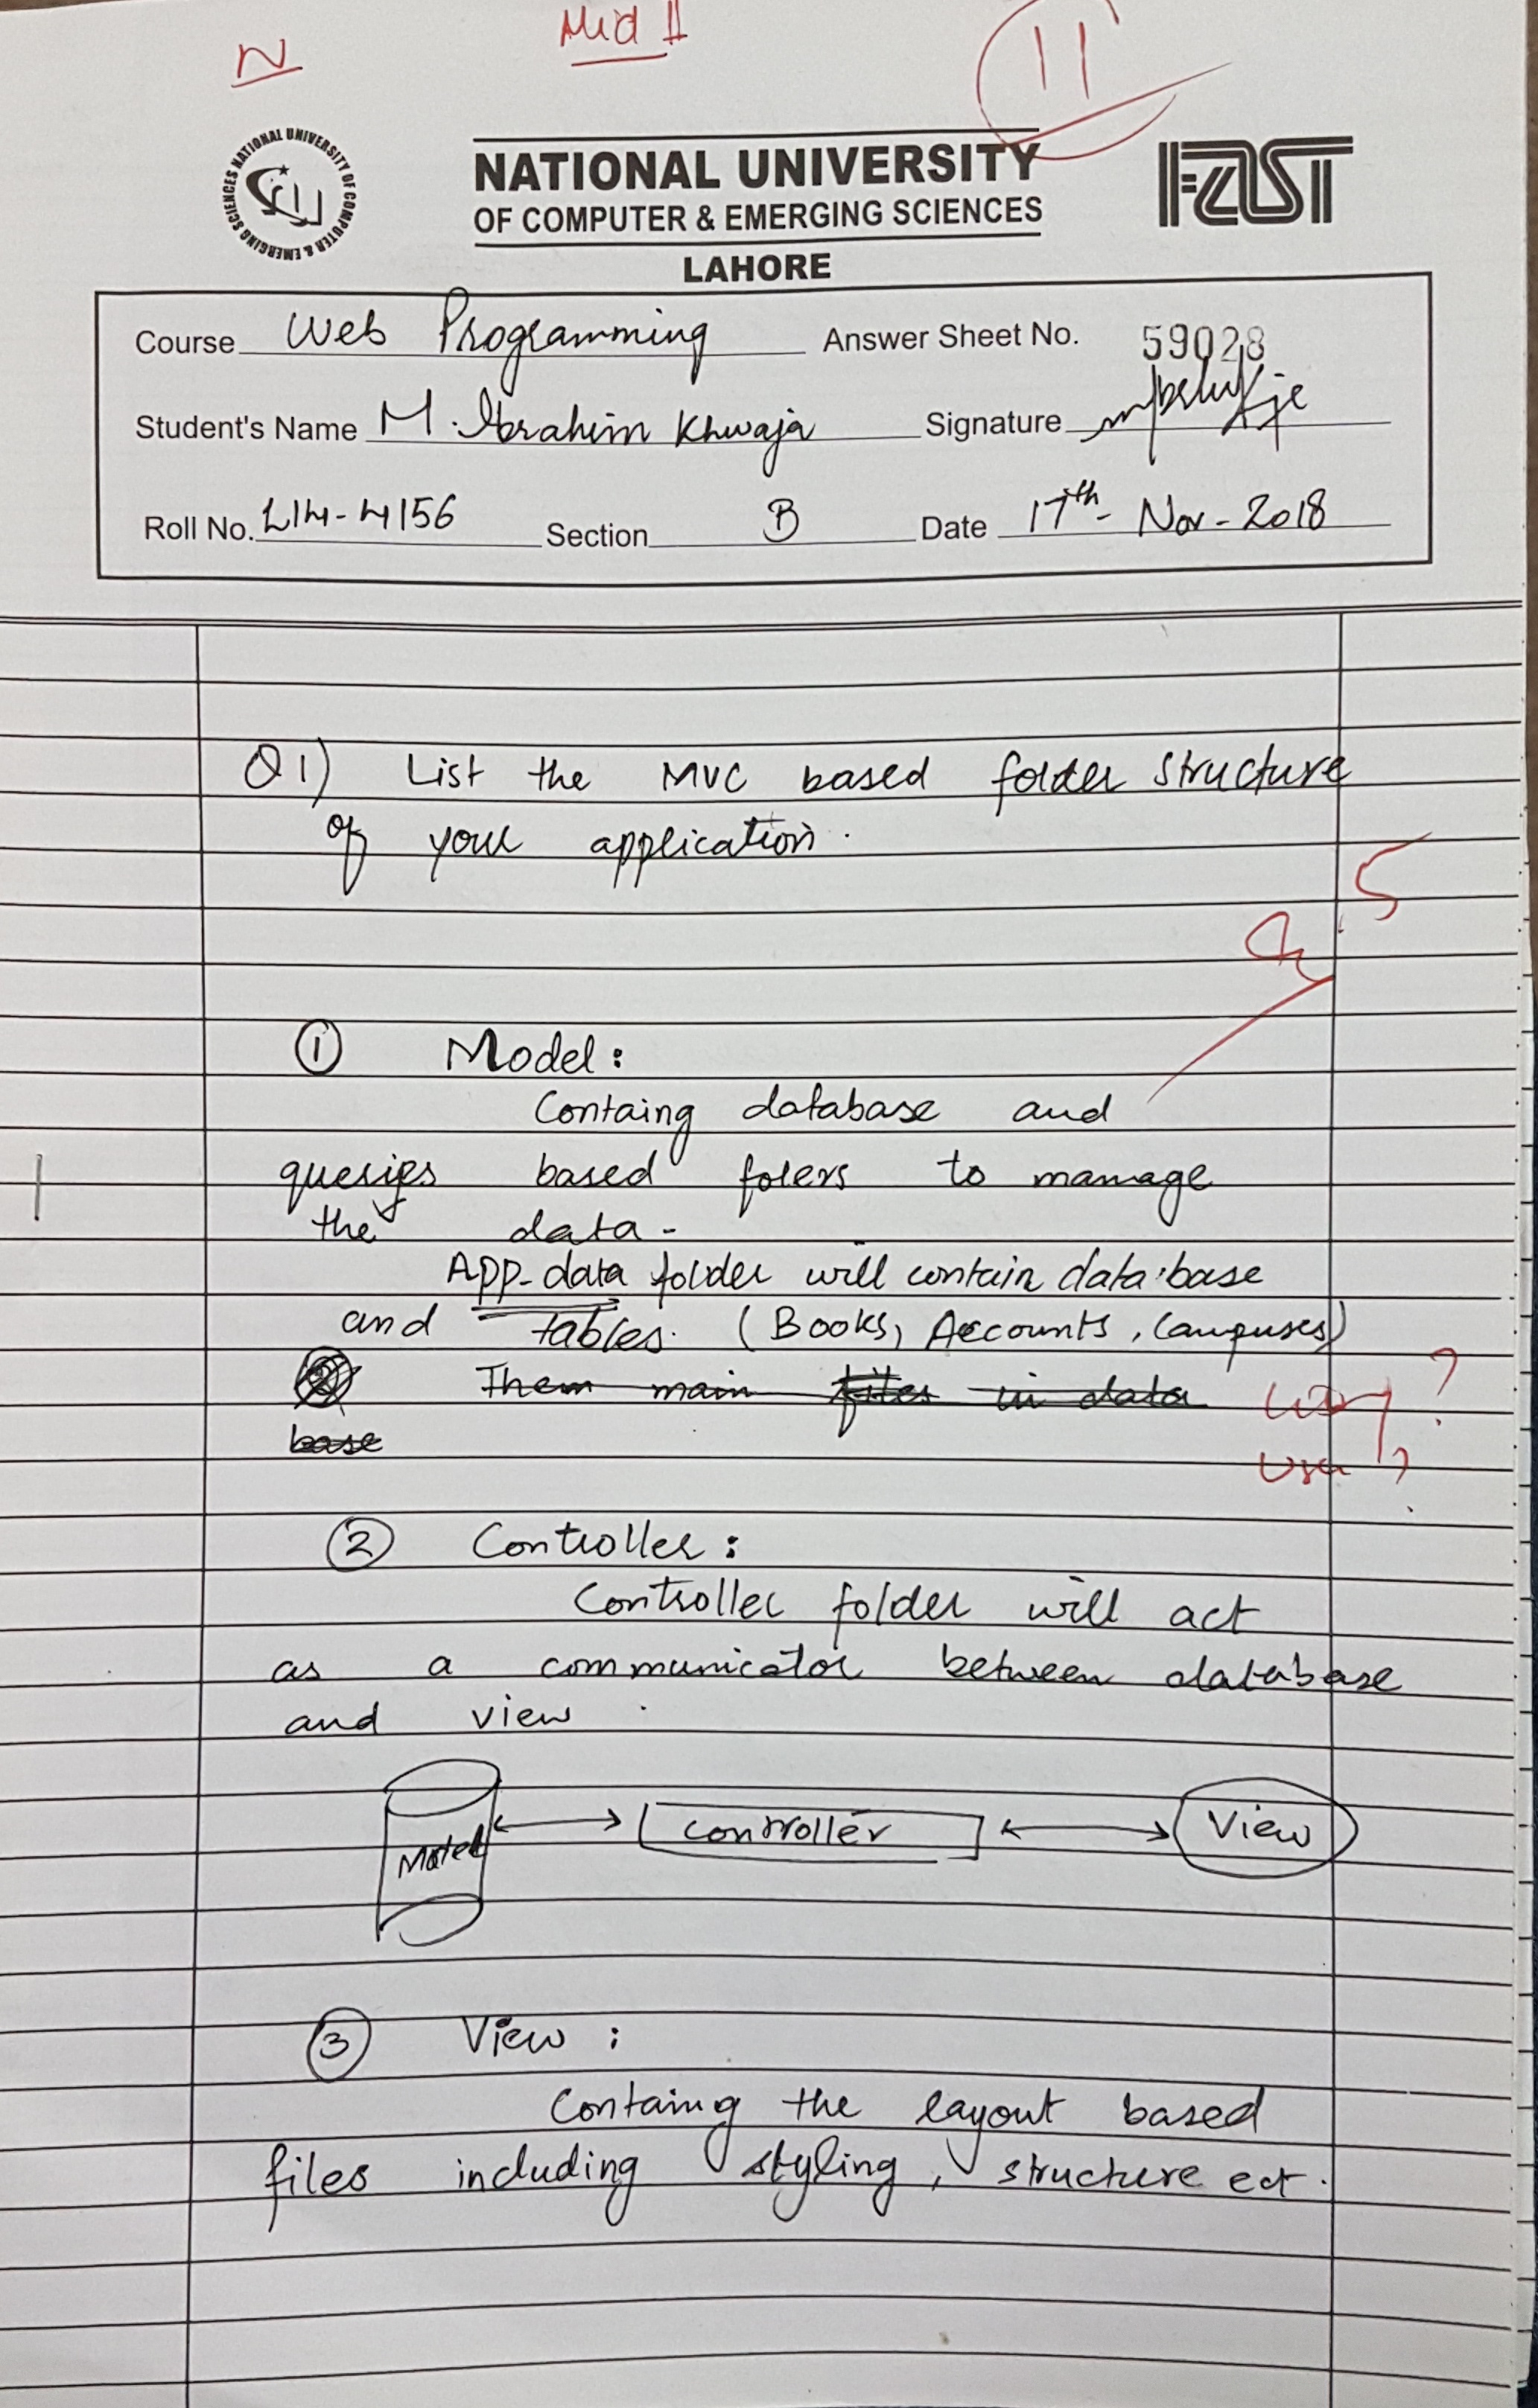 N
Mid II
11
NATIONAL UNIVERSITY OF COMPUTER & EMERGING SCIENCES
NATIONAL UNIVERSITY
OF COMPUTER & EMERGING SCIENCES
LAHORE
FAST
Course Web Programming Answer Sheet No. 59028
Student's Name M. Ibrahim Khwaja Signature
Roll No. L14-4156 Section B Date 17th- Nov-2018
Q1) List the MVC based folder structure
of your application.
5
① Model:
Containg database and
queries based folers to manage
the data-
App-data folder will contain database
and tables. (Books, Accounts, Campuses)
Them main files in data
base
?
User ?
② Controller:
Controller folder will act
as a communicator between database
and view.
Model controller View
③ View:
Containg the layout based
files including styling, structure ect.